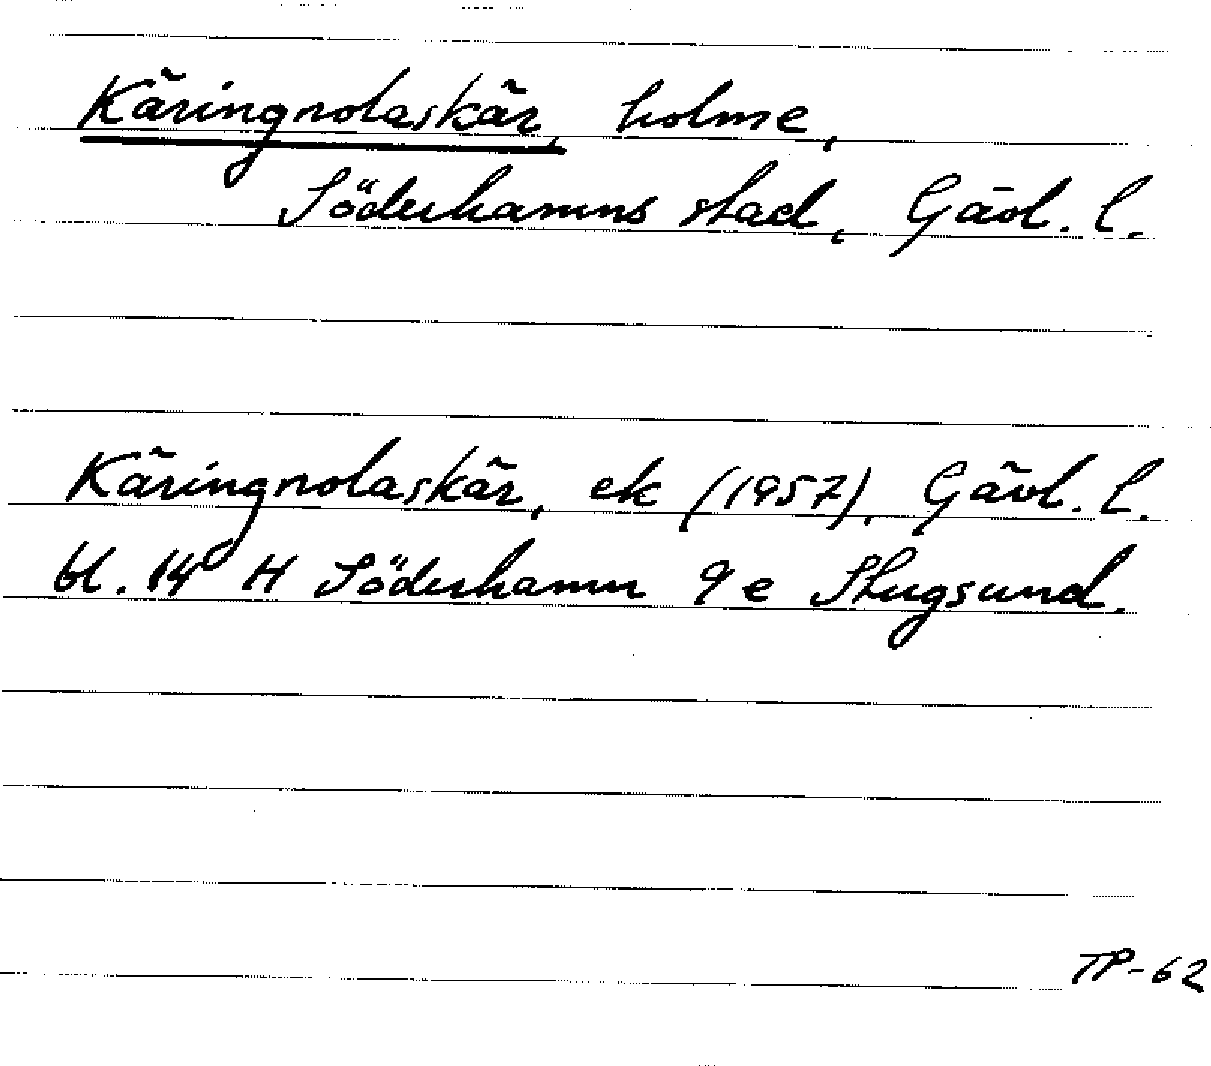 Käringnolaskär, holme,
Söderhamns stad, Gävl. l.
Käringnolaskär, ek (1957), Gävl. l.
bl. 14 H Söderhamn 9 e Stugsund.
TP-62